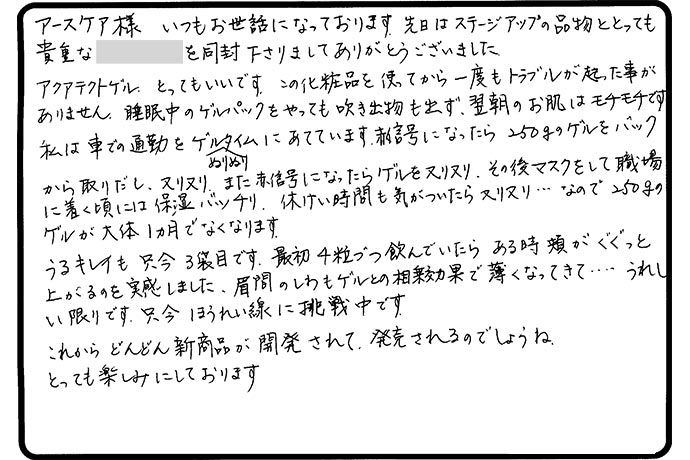 アースケア様 いつもお世話になっております。先日はステージアップの品物ととっても
貴重な を同封下さりましてありがとうございました
アクアテクトゲル、とってもいいです。この化粧品を使ってから一度もトラブルが起った事が
ありません。睡眠中のゲルパックをやっても吹き出物も出ず、翌朝のお肌はモチモチです
私は車での通勤をゲルタイムにあてています。赤信号になったら250gのゲルをバック
ぬりぬり
から取りだし、ヌリヌリ、また赤信号になったらゲルをヌリヌリ、その後マスクをして職場
に着く頃には保湿バッチリ。休けい時間も気がついたらヌリヌリ…なので250gの
ゲルが大体1カ月でなくなります。
うるキレイも只今3袋目です。最初4粒づつ飲んでいたらある時頬がぐぐっと
上がるのを実感しました、眉間のしわもゲルとの相乗効果で薄くなってきて‥‥うれし
い限りです。只今ほうれい線に挑戦中です。
これからどんどん新商品が開発されて、発売されるのでしょうね。
とっても楽しみにしております